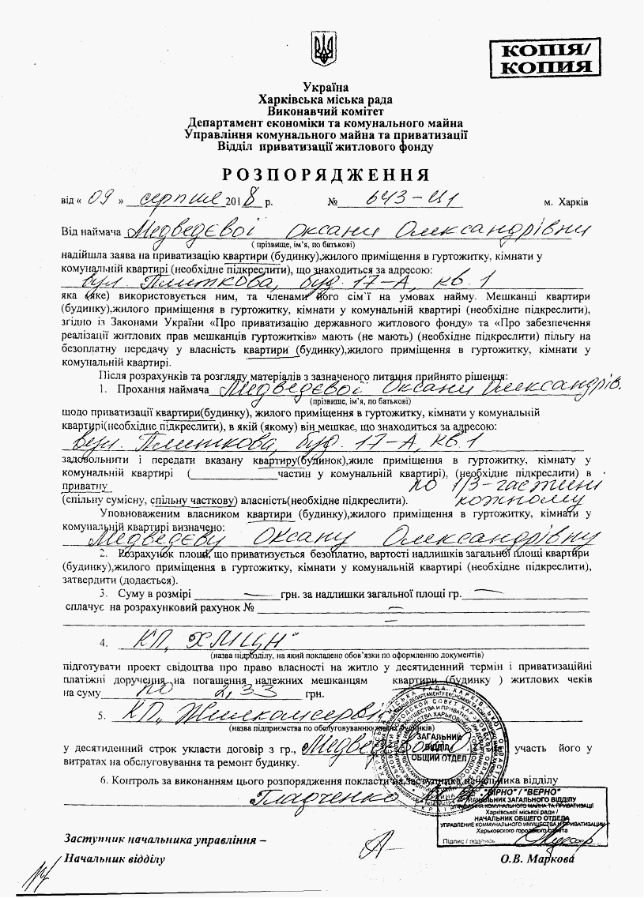 КОПІЯ/
КОПИЯ
Україна
Харківська міська рада
Виконавчий комітет
Департамент економіки та комунального майна
Управління комунального майна та приватизації
Відділ приватизації житлового фонду
РОЗПОРЯДЖЕННЯ
від « 09 » серпня 2018 р. № 643-И1 м. Харків
Від наймача Медведєвої Оксани Олександрівни
( прізвище, ім’я, по батькові)
надійшла заява на приватизацію квартири (будинку),жилого приміщення в гуртожитку, кімнати у
комунальній квартирі (необхідне підкреслити), що знаходиться за адресою:
вул. Плиткова, буд. 17-А, кв. 1
яка (яке) використовується ним, та членами його сім’ї на умовах найму. Мешканці квартири
(будинку),жилого приміщення в гуртожитку, кімнати у комунальній квартирі (необхідне підкреслити),
згідно із Законами України «Про приватизацію державного житлового фонду» та «Про забезпечення
реалізації житлових прав мешканців гуртожитків» мають (не мають) (необхідне підкреслити) пільгу на
безоплатну передачу у власність квартири (будинку),жилого приміщення в гуртожитку, кімнати у
комунальній квартирі.
Після розрахунків та розгляду матеріалів з зазначеного питання прийнято рішення:
1. Прохання наймача Медведєвої Оксани Олександрів.
(прізвище, ім’я, по батькові)
щодо приватизації квартири(будинку), жилого приміщення в гуртожитку, кімнати у комунальній
квартирі(необхідне підкреслити), в якій (якому) він мешкає, що знаходиться за адресою:
вул. Плиткова, буд. 17-А, кв. 1
задовольнити і передати вказану квартиру(будинок),жиле приміщення в гуртожитку, кімнату у
комунальній квартирі (частин у комунальній квартирі), (необхідне підкреслити) в
приватну по 1/3-частині
(спільну сумісну, спільну часткову) власність(необхідне підкреслити). кожному
Уповноваженим власником квартири (будинку),жилого приміщення в гуртожитку, кімнати у
комунальній квартирі визначено:
Медведєву Оксану Олександрівну
2. Розрахунок площі, що приватизується безоплатно, вартості надлишків загальної площі квартири
(будинку),жилого приміщення в гуртожитку, кімнати у комунальній квартирі (необхідне підкреслити),
затвердити (додається).
3. Суму в розмірі — грн. за надлишки загальної площі гр. —
сплачує на розрахунковий рахунок № —
4. КП „ХМІЦН"
(назва підрозділу, на який покладено обов’язки по оформленню документів)
підготувати проект свідоцтва про право власності на житло у десятиденний термін і приватизаційні
платіжні доручення на погашення належних мешканцям квартири (будинку ) житлових чеків
на суму по 2,33 грн.
5. КП „Жилкомсервіс
(назва підприємства по обслуговуванню жилих будинків)
у десятиденний строк укласти договір з гр., Медведєвою участь його у
витратах на обслуговування та ремонт будинку.
6. Контроль за виконанням цього розпорядження покласти на заступника начальника відділу
ЗАГАЛЬНИЙ
ВІДДІЛ
ОБЩИЙ ОТДЕЛ
"ВІРНО" / "ВЕРНО"
НАЧАЛЬНИК ЗАГАЛЬНОГО ВІДДІЛУ
УПРАВЛІННЯ КОМУНАЛЬНОГО МАЙНА ТА ПРИВАТИЗАЦІЇ
Харківської міської ради /
НАЧАЛЬНИК ОБЩЕГО ОТДЕЛА
УПРАВЛЕНИЕ КОММУНАЛЬНОГО ИМУЩЕСТВА И ПРИВАТИЗАЦИИ
Харьковского городского совета
Підпис / подпись
Заступник начальника управління –
Начальник відділу О.В. Маркова